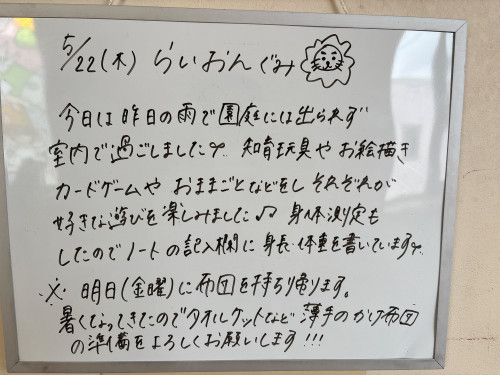 5/22(木) らいおんぐみ
今日は昨日の雨で園庭には出られず
室内で過ごしました 知育玩具やお絵描き
カードゲームや おままごとなどをし それぞれが
好きな遊びを楽しみました♫ 身体測定も
したのでノートの記入欄に身長・体重を書いています
※ 明日(金曜)に布団を持ち帰ります。
暑くなってきたのでタオルケットなど薄手のかけ布団
の準備をよろしくお願いします!!!